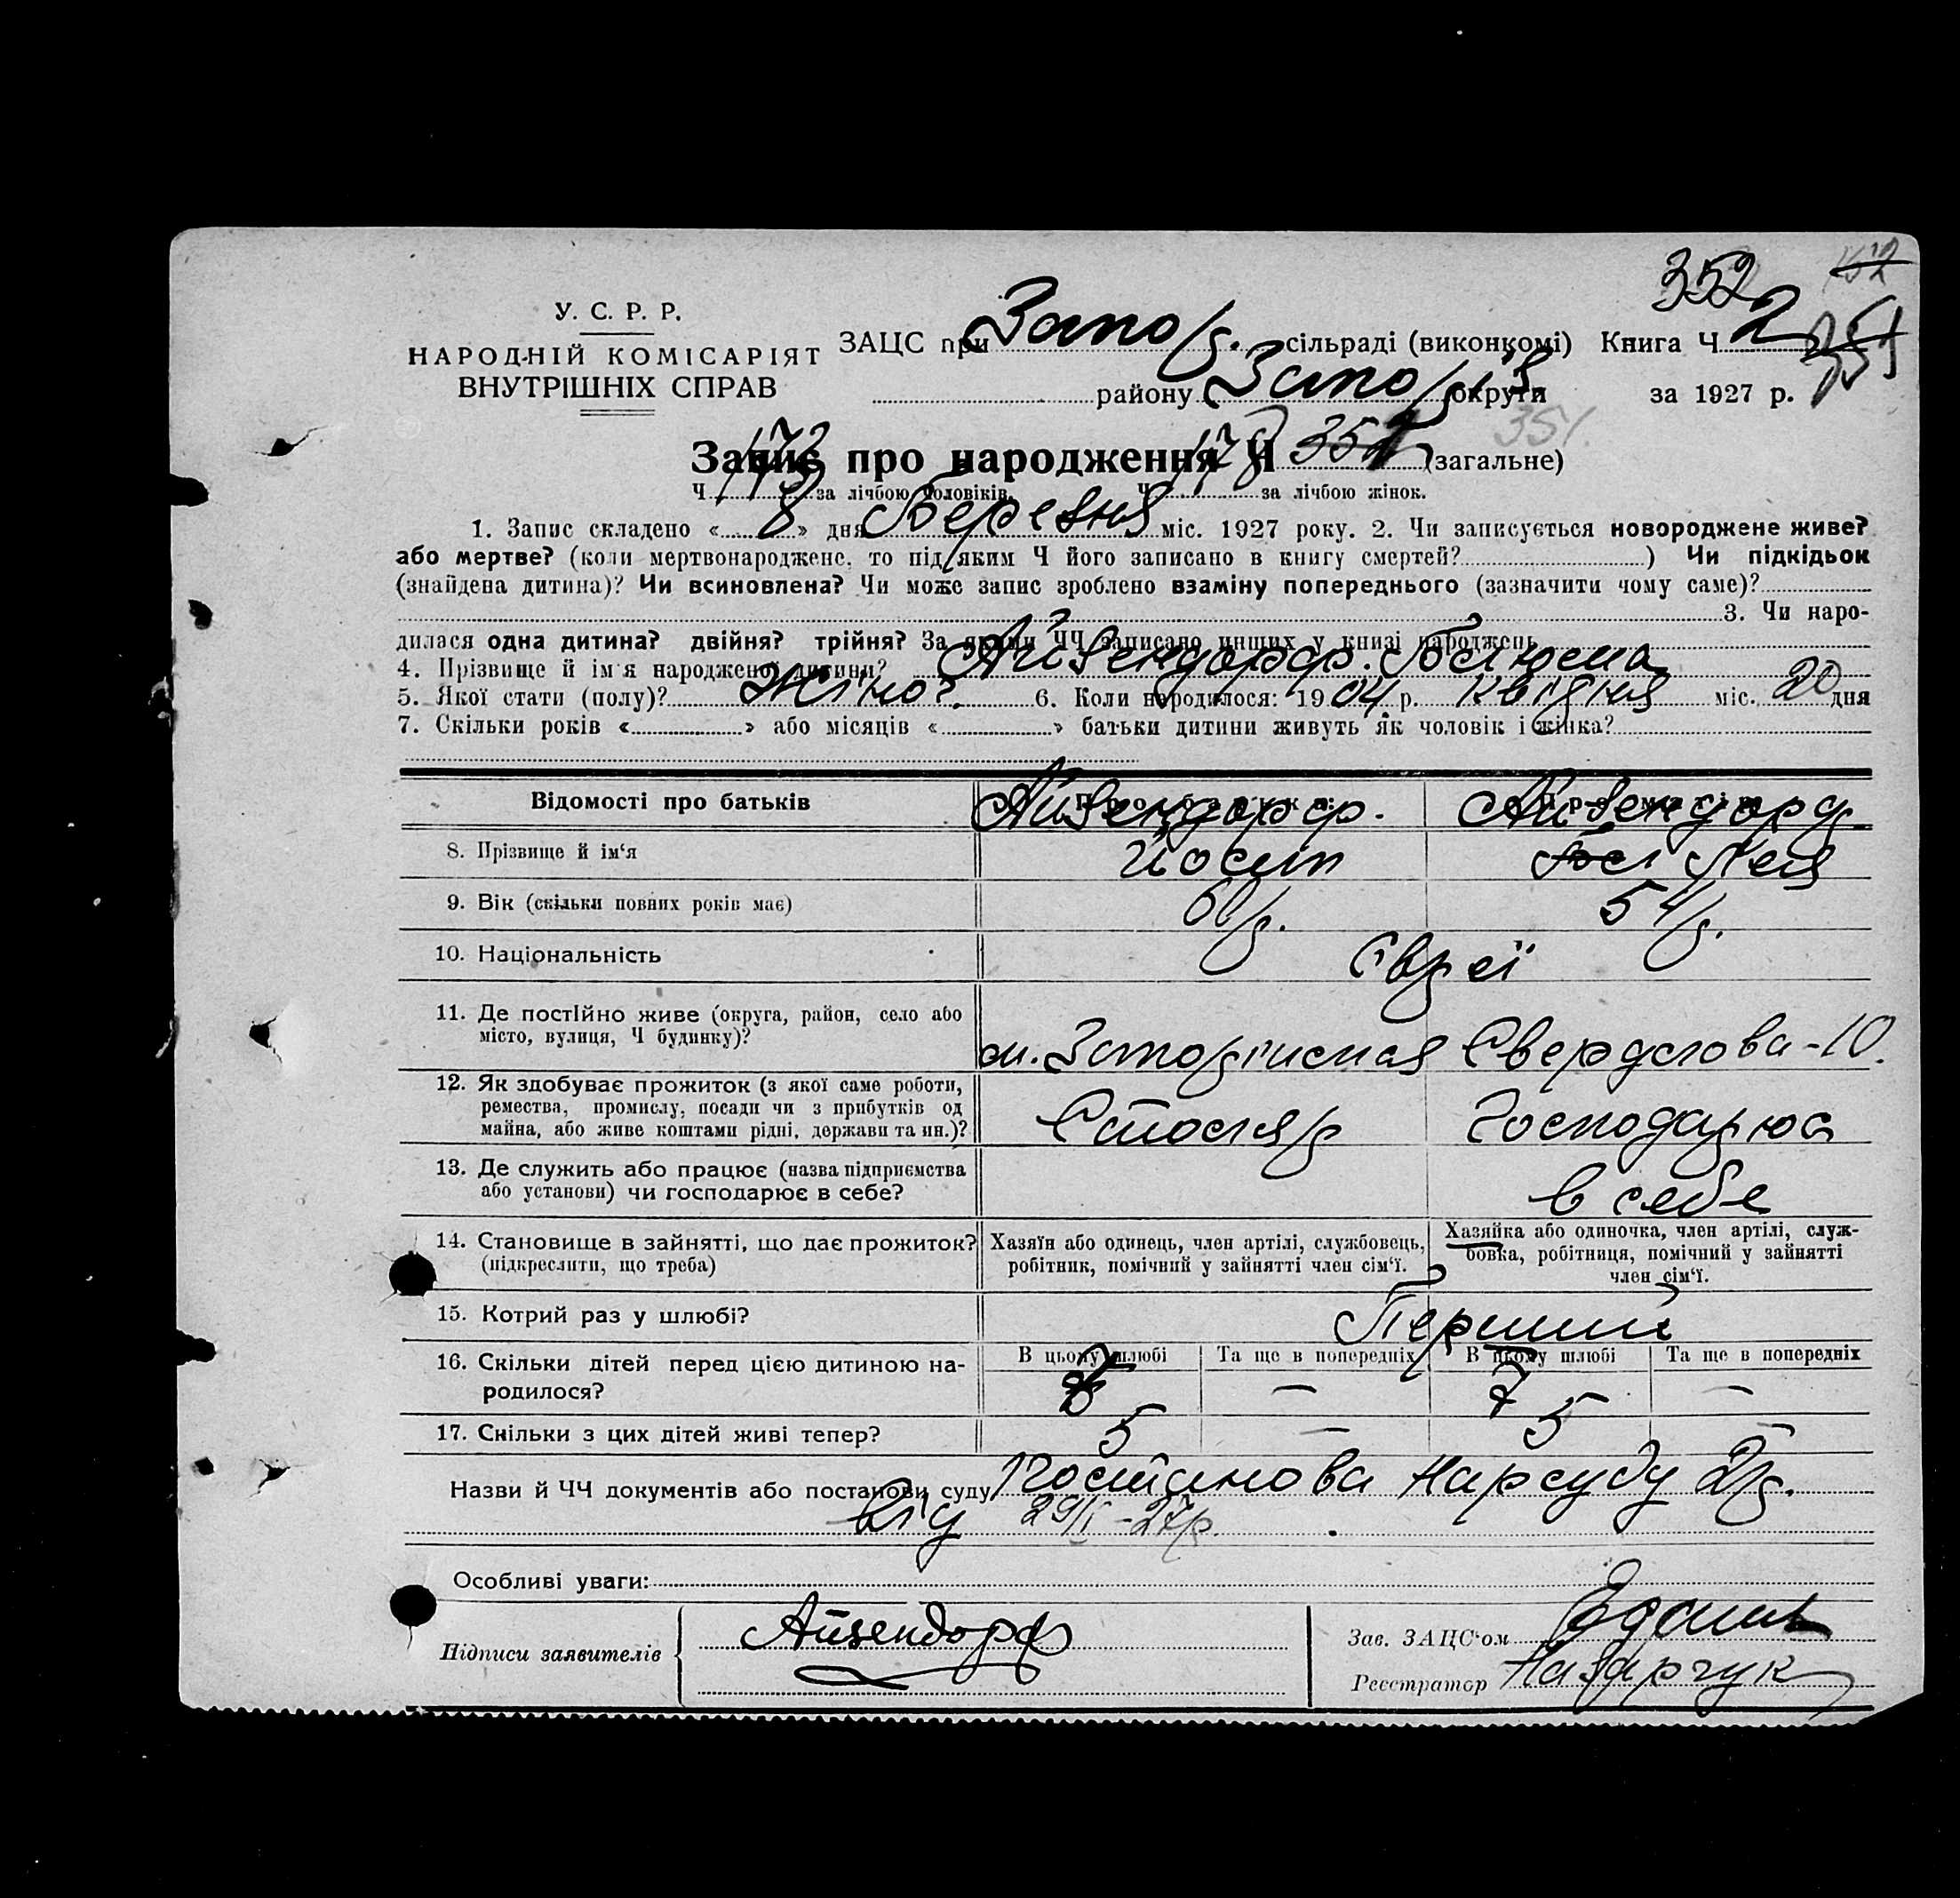 352
У. С. Р. Р.
НАРОДНІЙ КОМІСАРІЯТ
ВНУТРІШНІХ СПРАВ
ЗАЦС при Запор. сільраді (виконкомі) Книга Ч 2
району Запор. округи за 1927 р.
351.
Запис про народження Ч 352 (загальне)
Ч. за лічбою чоловіків. Ч. 178 за лічбою жінок.
1. Запис складено « 8 » дня Березня міс. 1927 року. 2. Чи записується новороджене живе?
або мертве? (коли мертвонароджене, то під яким Ч його записано в книгу смертей? ) Чи підкідьок
(знайдена дитина)? Чи всиновлена? Чи може запис зроблено взаміну попереднього (зазначити чому саме)?
3. Чи наро-
дилася одна дитина? двійня? трійня? За якими ЧЧ записано инших у книзі народжень
4. Прізвище й ім'я народженої дитини? Айзендорф.
5. Якої стати (полу)? Жіно?. 6. Коли народилося: 1904 р. квітня міс. 20 дня
7. Скільки років « » або місяців « » батьки дитини живуть як чоловік і жінка?
Відомості про батьків Про батька: Про матір:
8. Прізвище й ім'я Айзендорф. Йосип Айзендорф Лея
9. Вік (скільки повних років має) 60 р. 54 р.
10. Національність Євреї
11. Де постійно живе (округа, район, село або
місто, вулиця, Ч будинку)? м. Запоріжжя Свердлова-10.
12. Як здобуває прожиток (з якої саме роботи,
ремества, промислу, посади чи з прибутків од
майна, або живе коштами рідні, держави та ин.)? Столяр Господарює
13. Де служить або працює (назва підприємства
або установи) чи господарює в себе? в себе
14. Становище в зайнятті, що дає прожиток?
(підкреслити, що треба)
Хазяїн або одинець, член артілі, службовець,
робітник, помічний у зайнятті член сім'ї.
Хазяйка або одиночка, член артілі, служ-
бовка, робітниця, помічний у зайнятті
член сім'ї.
15. Котрий раз у шлюбі? Перший
16. Скільки дітей перед цією дитиною на-
родилося?
В цьому шлюбі Та ще в попередніх В цьому шлюбі Та ще в попередніх
7 — 7 —
17. Скільки з цих дітей живі тепер? 5 — 5 —
Назви й ЧЧ документів або постанови суду Постанова Нарсуду 2 р.
від 29/I-27р.
Особливі уваги:
Підписи заявителів Айзендорф
Зав. ЗАЦС'ом
Реєстратор Назарчук